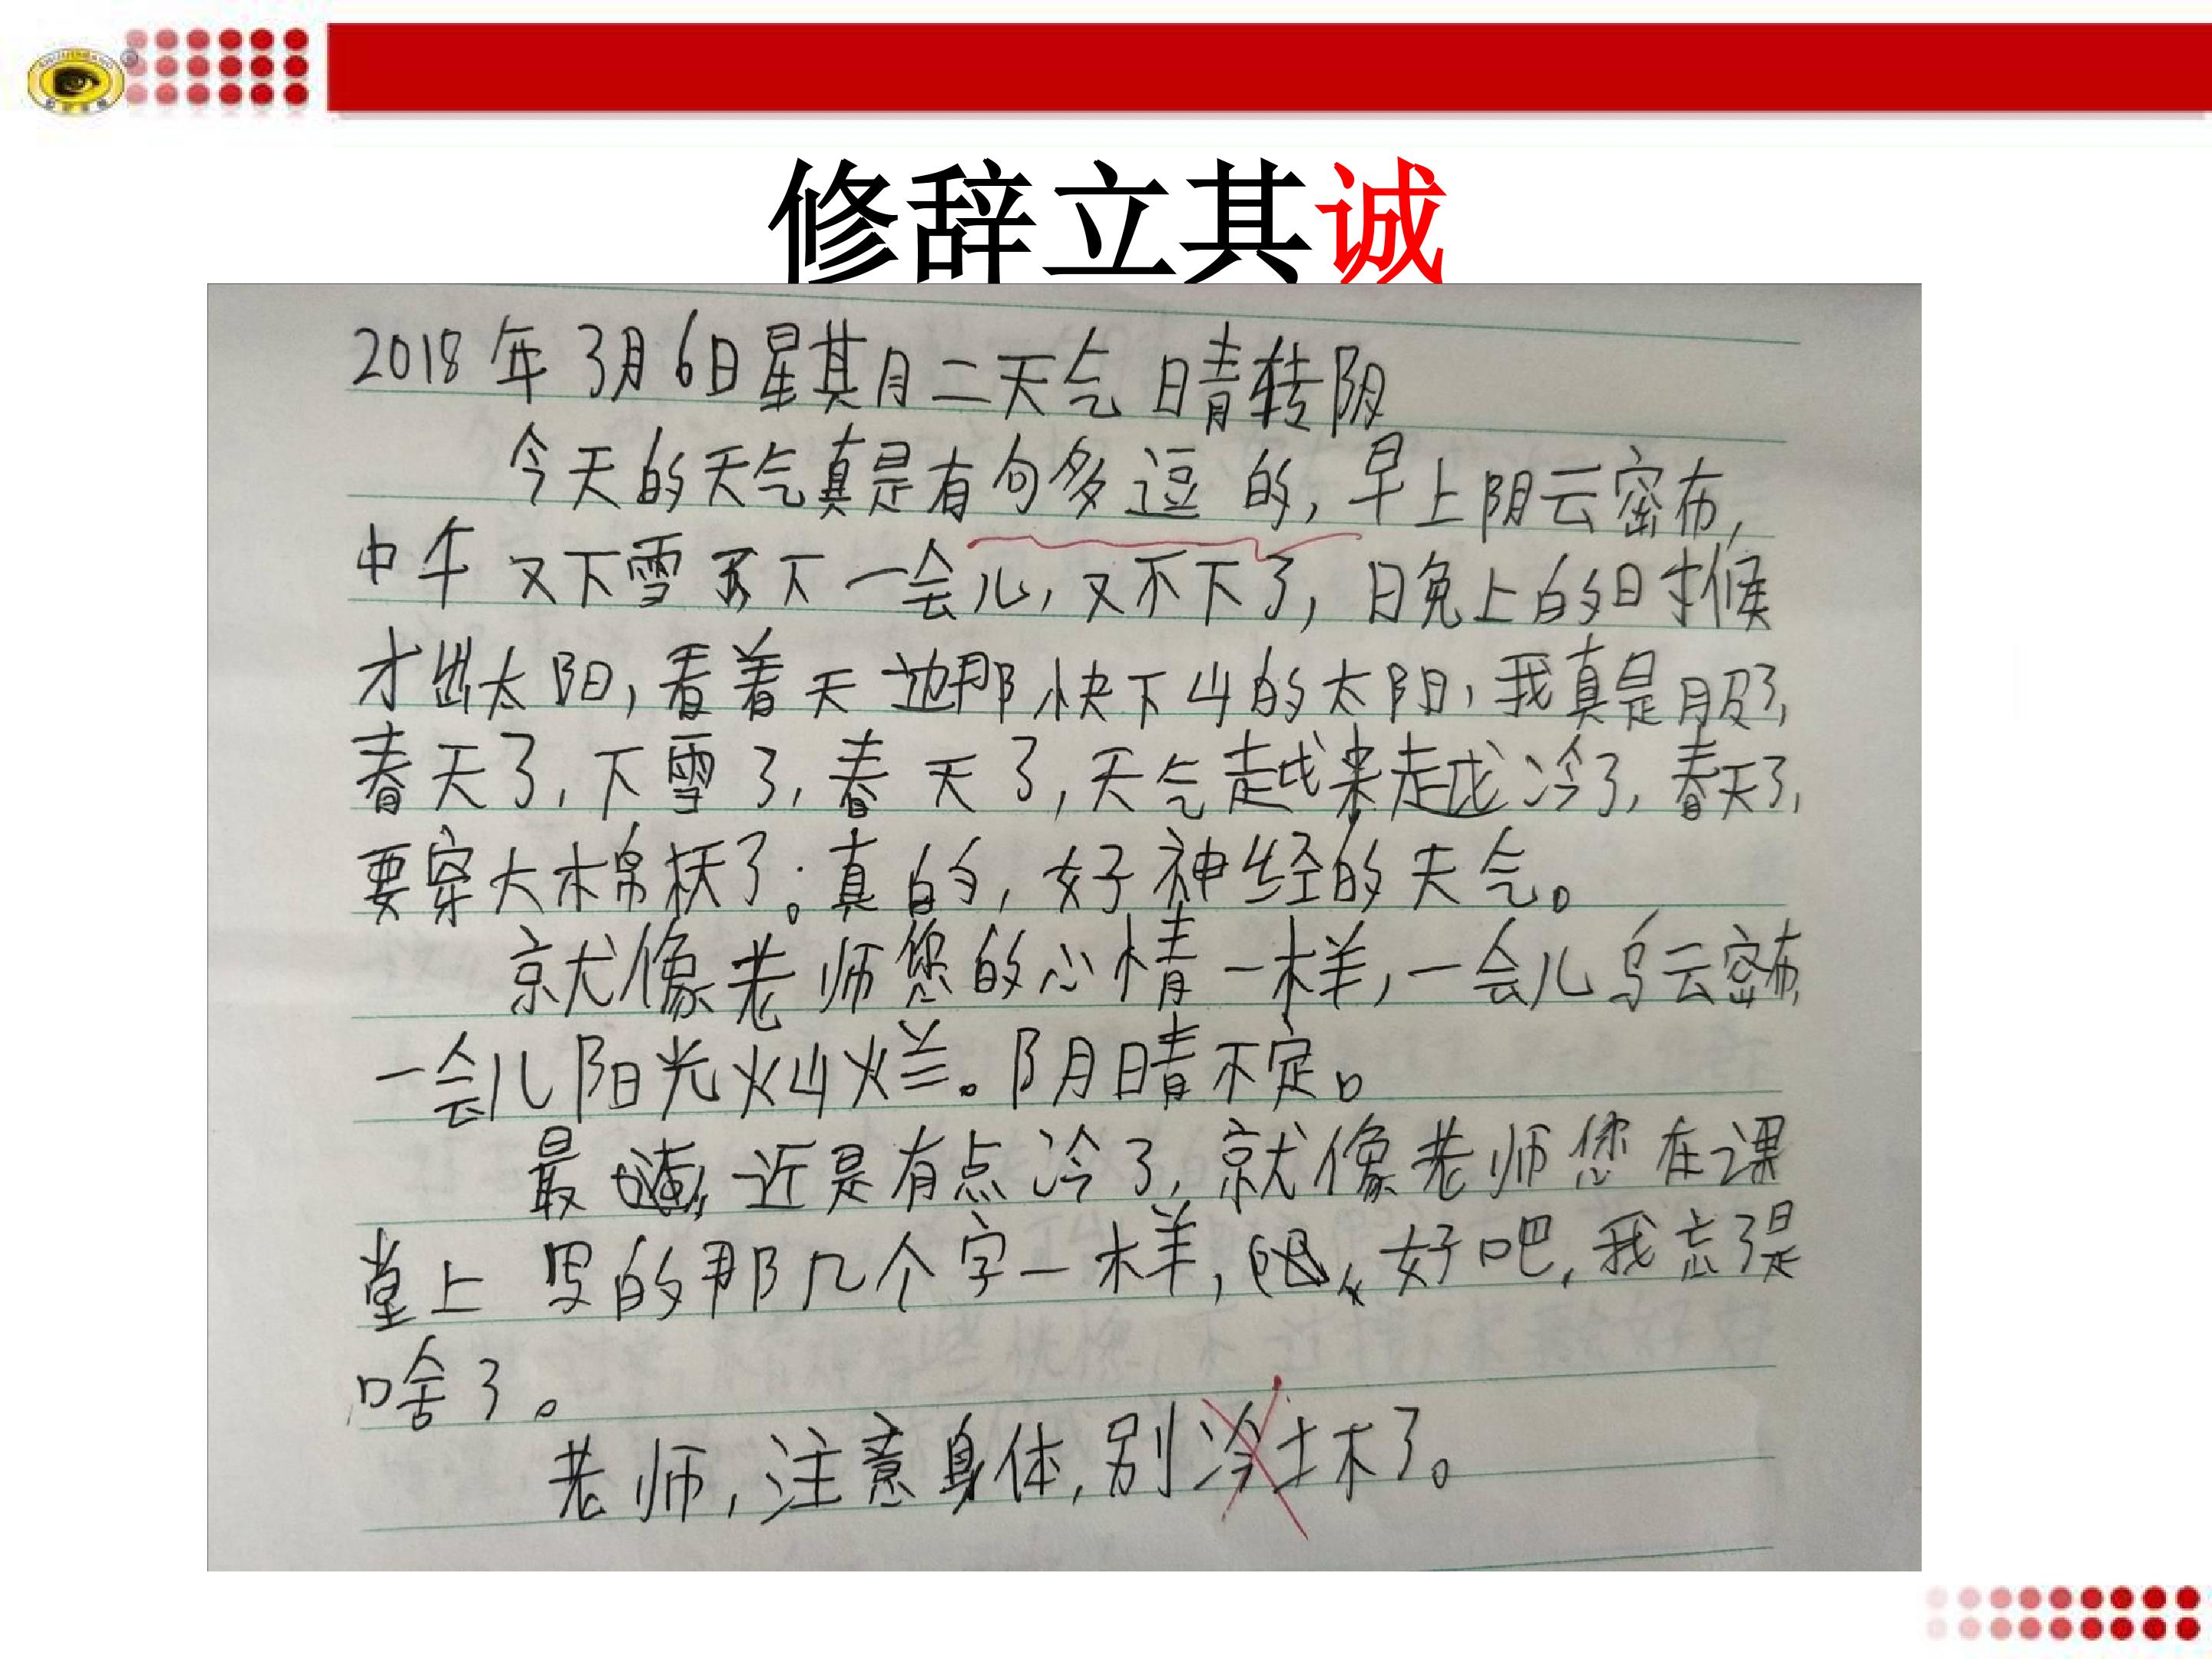 修辞立其诚
2018年3月6日星期二天气 晴转阴
今天的天气真是有句多逗的,早上阴云密布,
中午又下雪下一会儿,又不下了,晚上的时候
才出太阳,看着天边那快下山的太阳,我真是服了,
春天了,下雪了,春天了,天气越来越冷了,春天了,
要穿大棉袄了。真的,好神经的天气。
就像老师您的心情一样,一会儿乌云密布,
一会儿阳光灿烂。阴晴不定。
最近是有点冷了,就像老师您在课
堂上写的那几个字一样,好吧,我忘了是
啥了。
老师,注意身体,别冷
了。